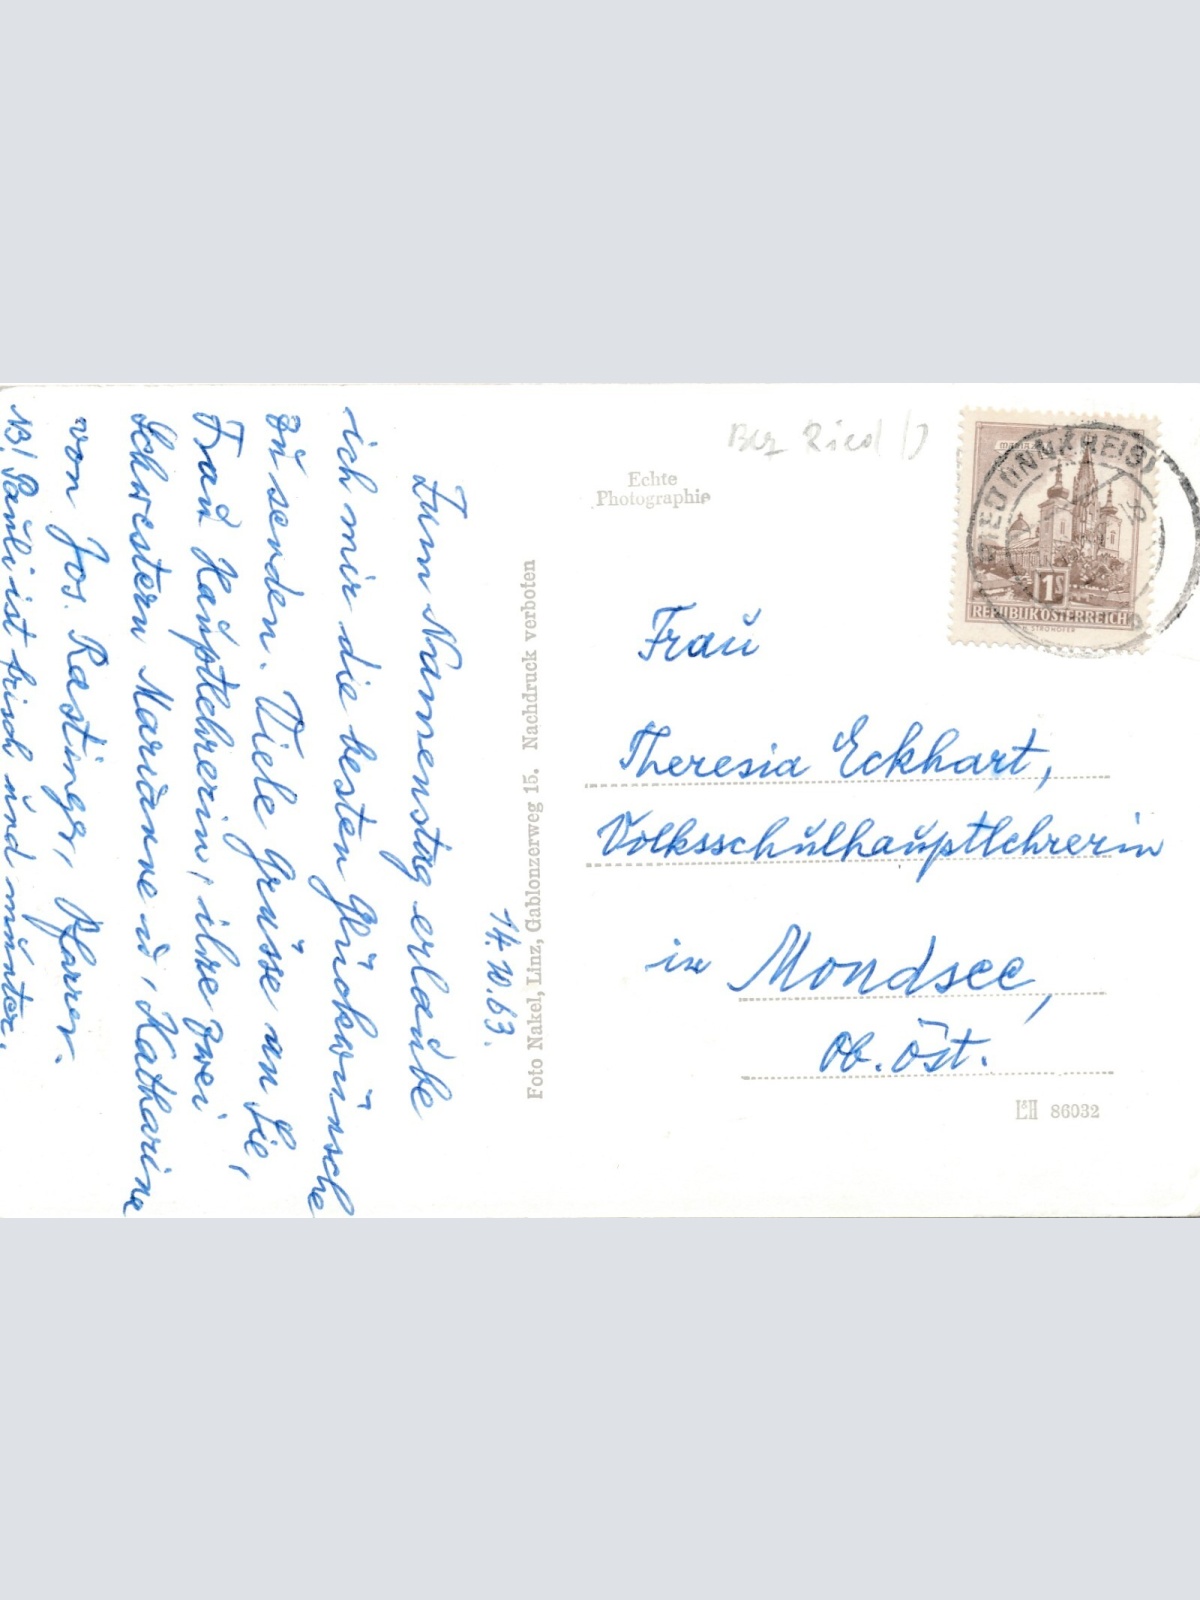 14.10.63.
Zum Namenstag erlaube
ich mir die besten Glückwünsche
zu senden. Viele Grüsse an Sie,
Frau Hauptlehrerin, ihre zwei
Schwestern Marianne u. Katharina
von Jos. Rastinger, Pfarrer.
NB! Pauli ist frisch und munter.
Foto Nakel, Linz, Gablonzerweg 15. Nachdruck verboten
Bez Ried
Echte
Photographie
RIED (INNKREIS)
1S
REPUBLIK ÖSTERREICH
Frau
Theresia Eckhart,
Volksschulhauptlehrerin
in Mondsee,
Ob. Öst.
86032